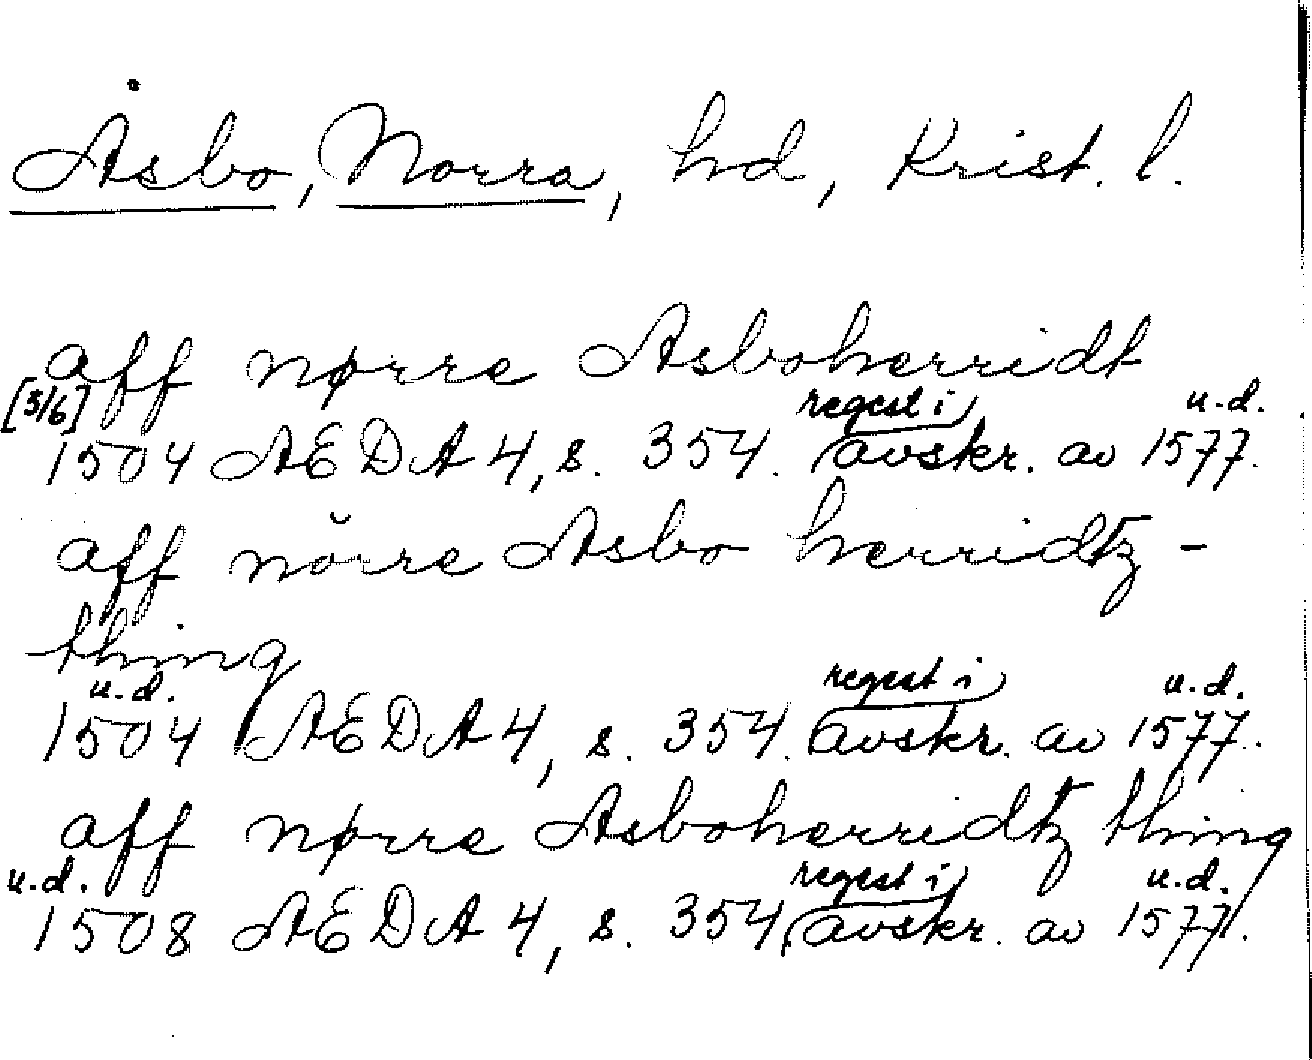 Åsbo, Norra, hd, Krist. l.
aff nørre Asboherridt
[3/6] regest i u.d.
1504 AEDA 4, s. 354. avskr. av 1577.
aff nŏrre Asbo herridtz-
thing
u.d. regest i u.d.
1504 AEDA 4, s. 354. avskr. av 1577.
aff nørre Asboherridtz thing
u.d. regest i u.d.
1508 AEDA 4, s. 354, avskr. av 1577.